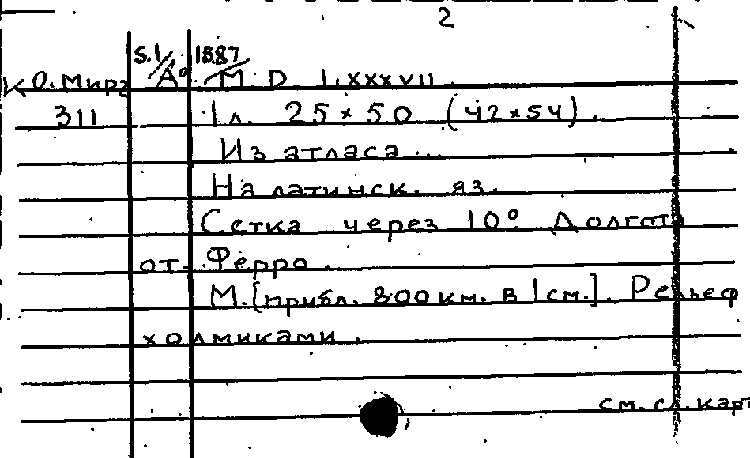 2
S.l., 1587
К О. Мира А° M. D. LXXXVII.
311 1 л. 25×50 (42×54).
Из атласа...
На латинск. яз.
Сетка через 10° Долгота
от Ферро.
М. [прибл. 800 км. в 1 см.]. Рельеф
холмиками.
см. сл. карт